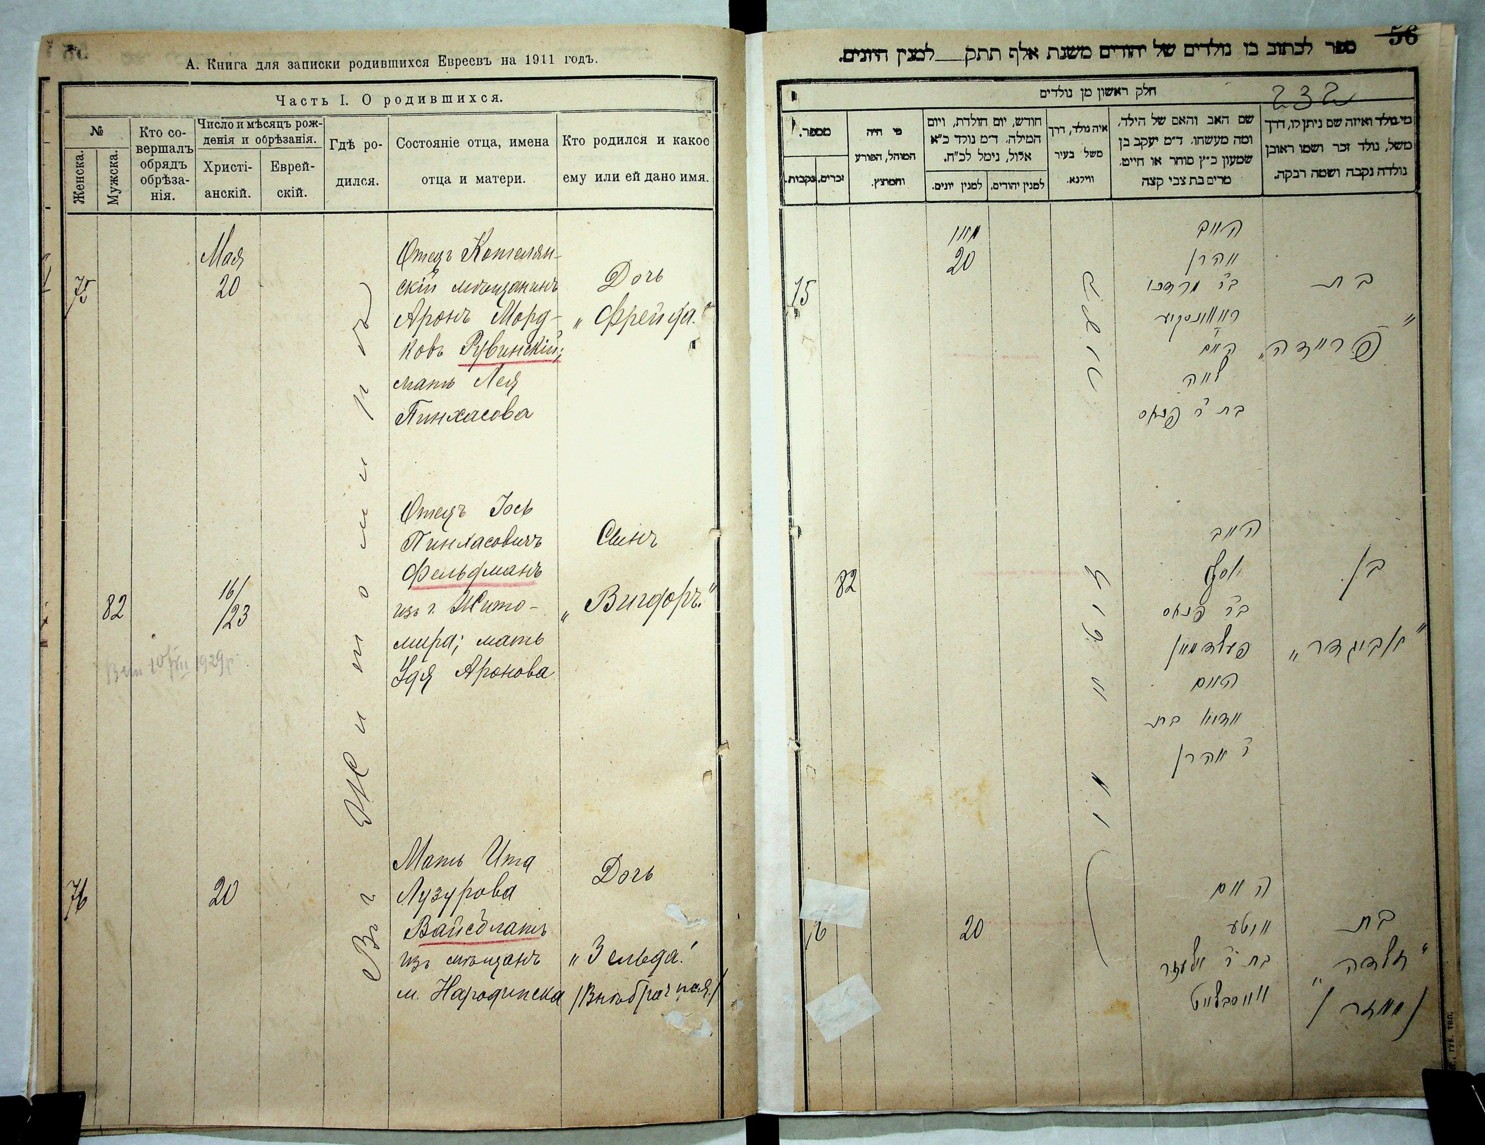 А. Книга для записки родившихся Евреевъ на 1911 годъ.
Часть I. О родившихся.
№
Женска.
Мужска.
Кто со-
вершалъ
обрядъ
обрѣза-
нія.
Число и мѣсяцъ рож-
денія и обрѣзанія.
Христі-
анскій.
Еврей-
скій.
Гдѣ ро-
дился.
Состояніе отца, имена
отца и матери.
Кто родился и какое
ему или ей дано имя.
Въ г. Житомирѣ
75
Мая
20
Отецъ Котелян-
скій мѣщанинъ
Аронъ Морд-
ковъ Рувинскій;
мать Лея
Пинхасова
Дочь
„Фрейда."
82
16/
/23
Отецъ Іось
Пинхасовичъ
Фельдманъ
изъ г. Жито-
мира; мать
Удя Аронова
Сынъ
„Вигдоръ."
76
20
Мать Ита
Лузурова
Вайсблатъ
изъ мѣщанъ
м. Народическа
Дочь
„Зельда"
/Внѣбрачная/
56
ספר לכתוב בו נולדים של יהודים משנת אלף תתק__למנין היונים.
חלק ראשון מן נולדים
232
מספר.
זכרים.
נקבות.
מי היה
המוהל, הפורע
והמוצץ.
חודש, יום הולדת, ויום
המילה. ד״מ נולד כ״א
אלול, נימל לכ״ח.
למנין יונים.
למנין יהודים.
איה נולד, דרך
משל בעיר
ווילנא.
שם האב והאם של הילד,
ומה מעשהו. ד״מ יעקב בן
שמעון כ״ץ סוחר או חייט.
מרים בת צבי קצה
מי נולד ואיזה שם ניתן לו, דרך
משל, נולד זכר ושמו ראובן
נולדה נקבה ושמה רבקה.
75
מאי
20
האב
אהרן
ב״ר מרדכי
האם
לאה
בת ר׳ פנחס
בת
„פריידה"
82
האב
יוסף
ב״ר פנחס
פעלדמאן
האם
אהרן
בן
„אביגדר"
76
20
האם
איטע
בת ר׳ אלעזר
ווייסבלאט
בת
„זעלדה"